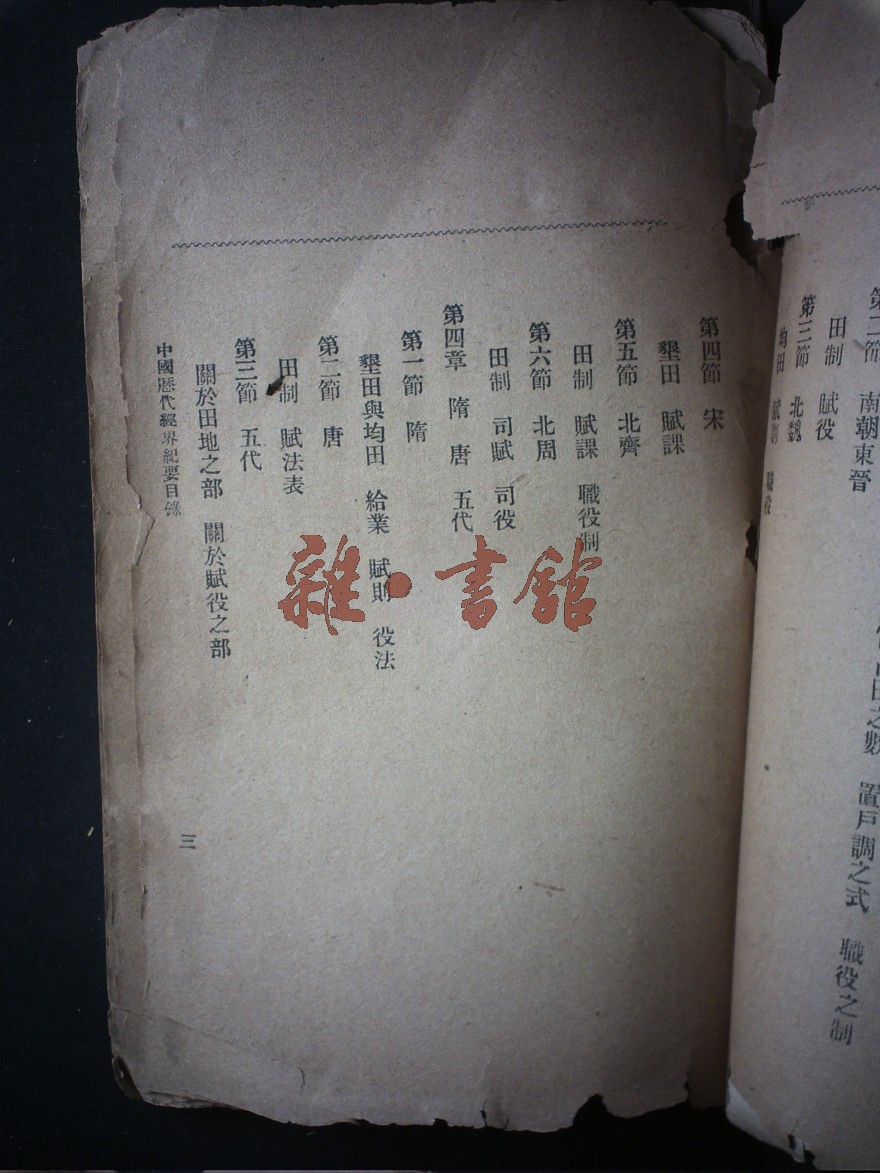 第二節　南朝東晉
田制　賦役
第三節　北魏
均田　賦則　職役
田之數　置戶調之式　職役之制
第四節　宋
墾田　賦課
第五節　北齊
田制　賦課　職役制
第六節　北周
田制　司賦　司役
第四章　隋　唐　五代
第一節　隋
墾田與均田　給業　賦則　役法
第二節　唐
田制　賦法表
第三節　五代
關於田地之部　關於賦役之部
中國歷代經界紀要目錄
三
雜·書館